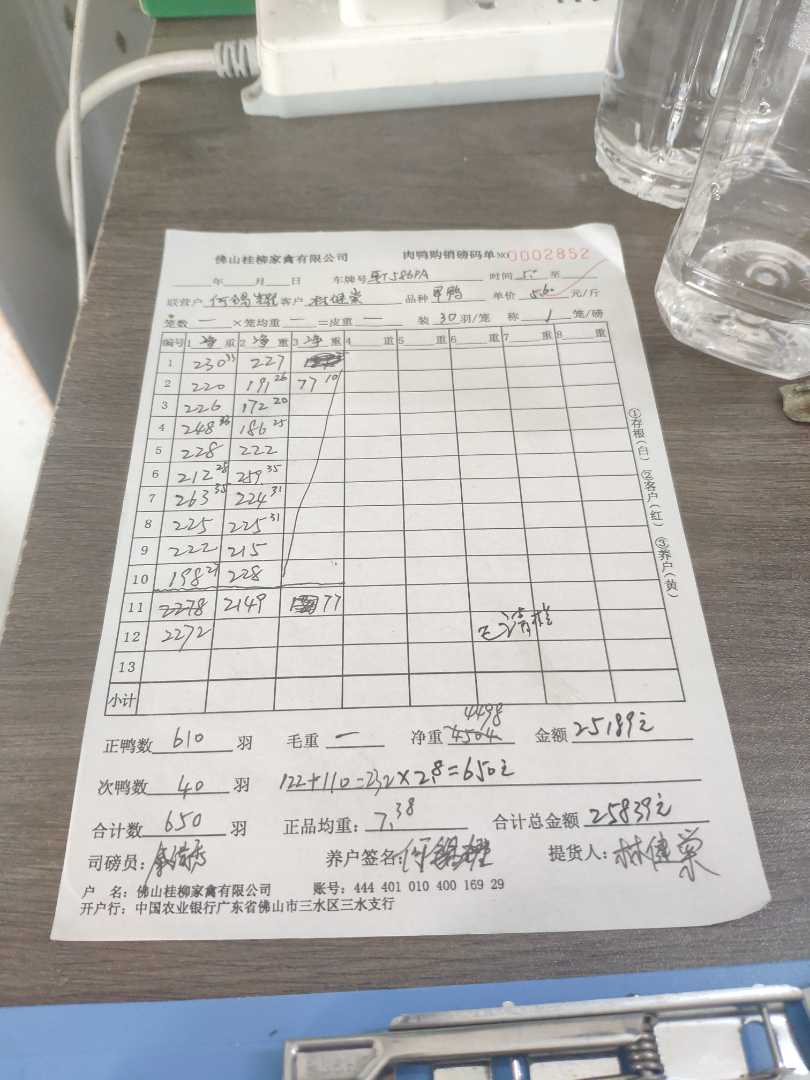 佛山桂柳家禽有限公司 肉鸭购销磅码单 NO 0002852
年 月 日 车牌号 时间 5: 至
联营户 何锡耀 客户 林健荣 品种 甲鸭 单价 5.60 元/斤
笼数 — ×笼均重 — =皮重 — 装 30 羽/笼 称 1 笼/磅
编号 1 净 重 2 净 重 3 净 重 4 重 5 重 6 重 7 重 8 重
1 230 33 227
2 220 191 26 77 10
3 226 172 20
4 248 33 186 25
5 228 222
6 212 28 259 35
7 263 35 224 31
8 225 225 31
9 222 215
10 198 27 228
11 2278 2149 77
12 2272 已清栏
13
小计
①存根(白) ②客户(红) ③养户(黄)
4498
正鸭数 610 羽 毛重 — 净重 4504 金额 25189元
次鸭数 40 羽 122+110=232×2.8=650元
合计数 650 羽 正品均重: 7.38 合计总金额 25839元
司磅员: 养户签名: 何锡耀 提货人: 林健荣
户 名: 佛山桂柳家禽有限公司 账号: 444 401 010 400 169 29
开户行: 中国农业银行广东省佛山市三水区三水支行